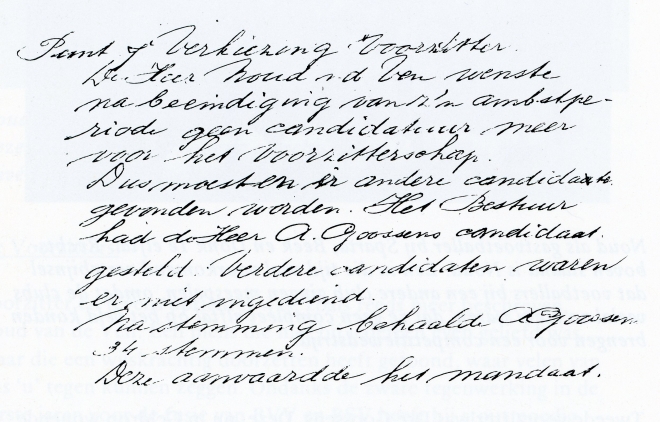 Punt f Verkiezing Voorzitter.
De Heer Noud v d Ven wenste
na beeindiging van z'n ambtspe-
riode geen candidatuur meer
voor het Voorzitterschap.
Dus moesten er andere candidaate
gevonden worden. Het Bestuur
had de Heer A. Goossens candidaat.
gesteld. Verdere candidaten waren
er niet ingediend.
Na stemming behaalde A Goossen
34 stemmen.
Deze aanvaardde het mandaat.